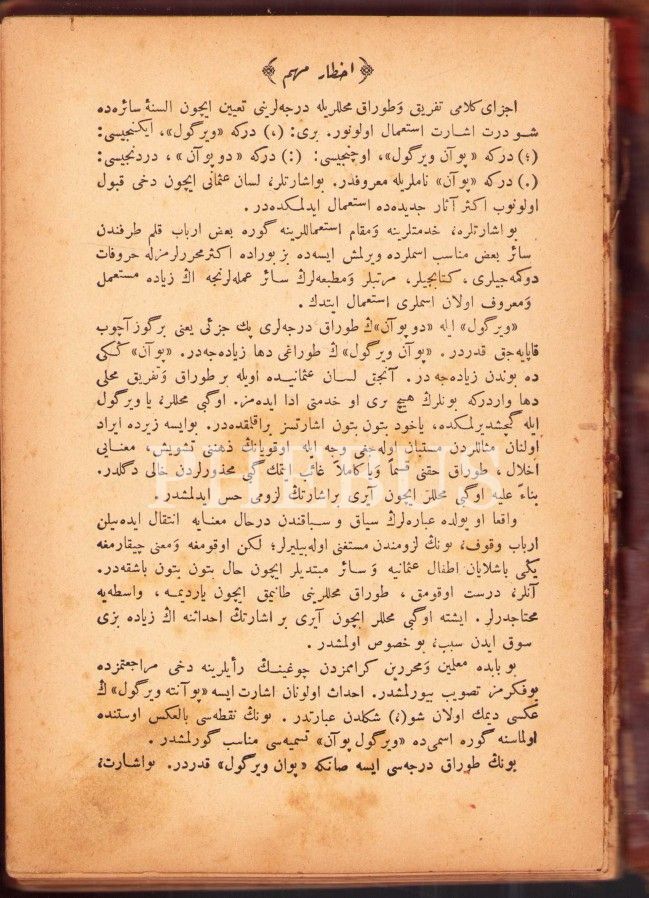 ﴿ اخطار مهم ﴾
اجزای كلامی تفریق وَطوراق محللریله درجه‌لرینی تعیین ایچون السنهٔ سائره‌ده
شو درت اشارت استعمال اولونور. بری: (،) دركه «ویرگول»، ایكنجیسی:
(؛) دركه «پوآن ویرگول»، اوچنجیسی: (:) دركه «دو پوآن»، دردنجیسی:
(.) دركه «پوآن» ناملریله معروفدر. بواشارتلر، لسان عثمانی ایچون دخی قبول
اولونوب اكثر آثار جدیده‌ده استعمال ایدلمكده‌در.
بو اشارتلره، خدمتلرینه وَمقام استعماللرینه گوره بعض ارباب قلم طرفندن
سائر بعض مناسب اسملرده ویرلمش ایسه‌ده بز بوراده اكثر محررلرمزله حروفات
دوكمه‌جیلری، كتابجیلر، مرتبلر وَمطبعه‌لرڭ سائر عمله‌لرنجه اڭ زیاده مستعمل
وَمعروف اولان اسملری استعمال ایتدك.
«ویرگول» ایله «دو پوآن»ڭ طوراق درجه‌لری پك جزئی یعنی برگوز آچوب
قاپایه‌جق قدردر. «پوآن ویرگول»ڭ طوراغی دها زیاده‌جه‌در. «پوآن»ڭكی
ده بوندن زیاده‌جه‌در. آنجق لسان عثمانیده اویله بر طوراق وَتفریق محلی
دها واردركه بونلرڭ هیچ بری او خدمتی ادا ایده‌مز. اوگبی محللر، یا ویرگول
ایله گچشدیرلمكده، یاخود بتون بتون اشارتسز براقلمقده‌در. بوایسه زیرده ایراد
اولنان مثاللردن مستبان اوله‌جغی وجه ایله اوقویانڭ ذهنی تشویش، معنایی
اخلال، طوراق حقنی قسماً وَیا كاملاً غائب ایتمك گبی محذورلردن خالی دگلدر.
بناءً علیه اوگبی محللر ایچون آیری براشارتڭ لزومی حس ایدلمشدر.
واقعا او یولده عباره‌لرڭ سیاق و سباقندن درحال معنایه انتقال ایده‌بیلن
ارباب وقوف، بونڭ لزومندن مستغنی اوله‌بیلیرلر؛ لكن اوقومغه وَمعنی چیقارمغه
یڭی باشلایان اطفال عثمانیه وَسائر مبتدیلر ایچون حال بتون بتون باشقه‌در.
آنلر، درست اوقومق، طوراق محللرینی طانیمق ایچون یاردیمه، واسطه‌یه
محتاجدرلر. ایشته اوگبی محللر ایچون آیری بر اشارتڭ احداثنه اڭ زیاده بزی
سوق ایدن سبب، بو خصوص اولمشدر.
بو بابده معلمین وَمحررین كرامزدن چوغینڭ رأیلرینه دخی مراجعتمزده
بوفكرمز تصویب بیورلمشدر. احداث اولونان اشارت ایسه «پوآنته ویرگول»ڭ
عكسی دیمك اولان شو(،) شكلدن عبارتدر. بونڭ نقطه‌سی بالعكس اوستنده
اولماسنه گوره اسمی‌ده «ویرگول پوآن» تسمیه‌سی مناسب گورلمشدر.
بونڭ طوراق درجه‌سی ایسه صانكه «پوان ویرگول» قدردر. بواشارت،
PHEBUS